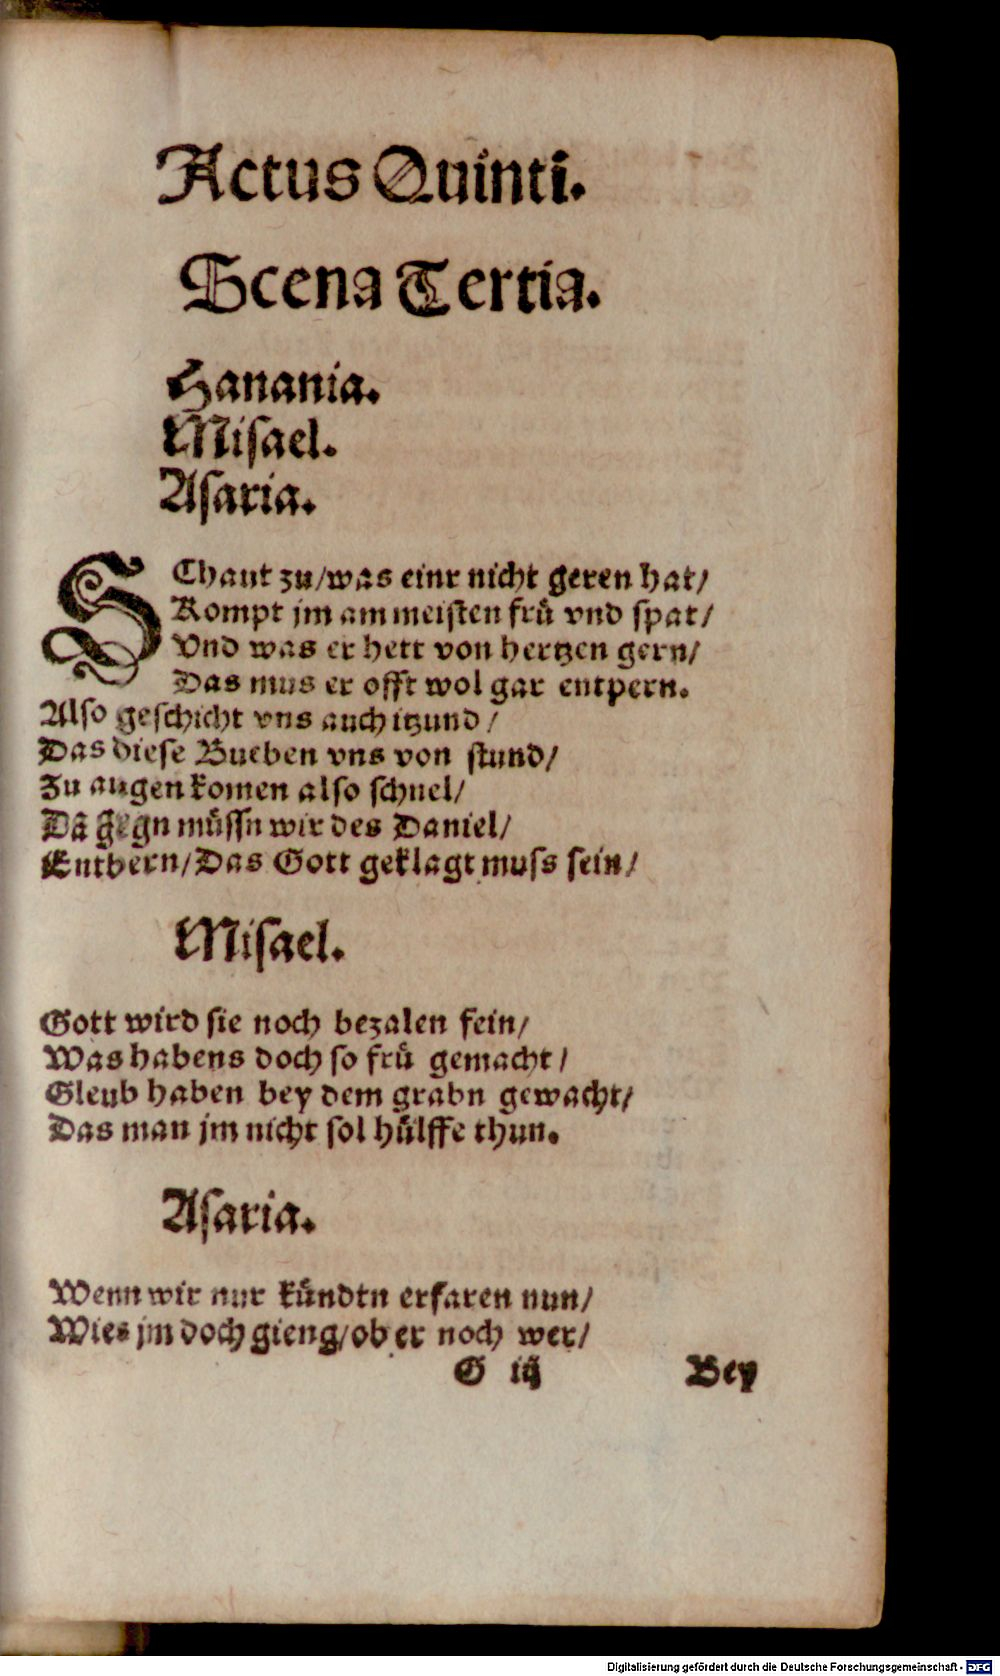 Actus Quinti.
Scena Tertia.
Hanania.
Misael.
Asaria.
SChaut zu/was einr nicht geren hat/
Kompt jm am meisten frü vnd spat/
Vnd was er hett von hertzen gern/
Das mus er offt wol gar entpern.
Also geschicht vns auch itzund/
Das diese Bueben vns von stund/
Zu augen komen also schnel/
Da gegn müssn wir des Daniel/
Entbern/Das Gott geklagt muss sein/
Misael.
Gott wird sie noch bezalen fein/
Was habens doch so frü gemacht/
Gleub haben bey dem grabn gewacht/
Das man jm nicht sol hülffe thun.
Asaria.
Wenn wir nur kündtn erfaren nun/
Wies jm doch gieng/ob er noch wer/
G iij Bey
Digitalisierung gefördert durch die Deutsche Forschungsgemeinschaft - DFG